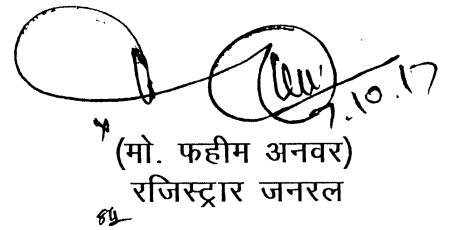 7.10.17
(मो. फहीम अनवर)
रजिस्ट्रार जनरल